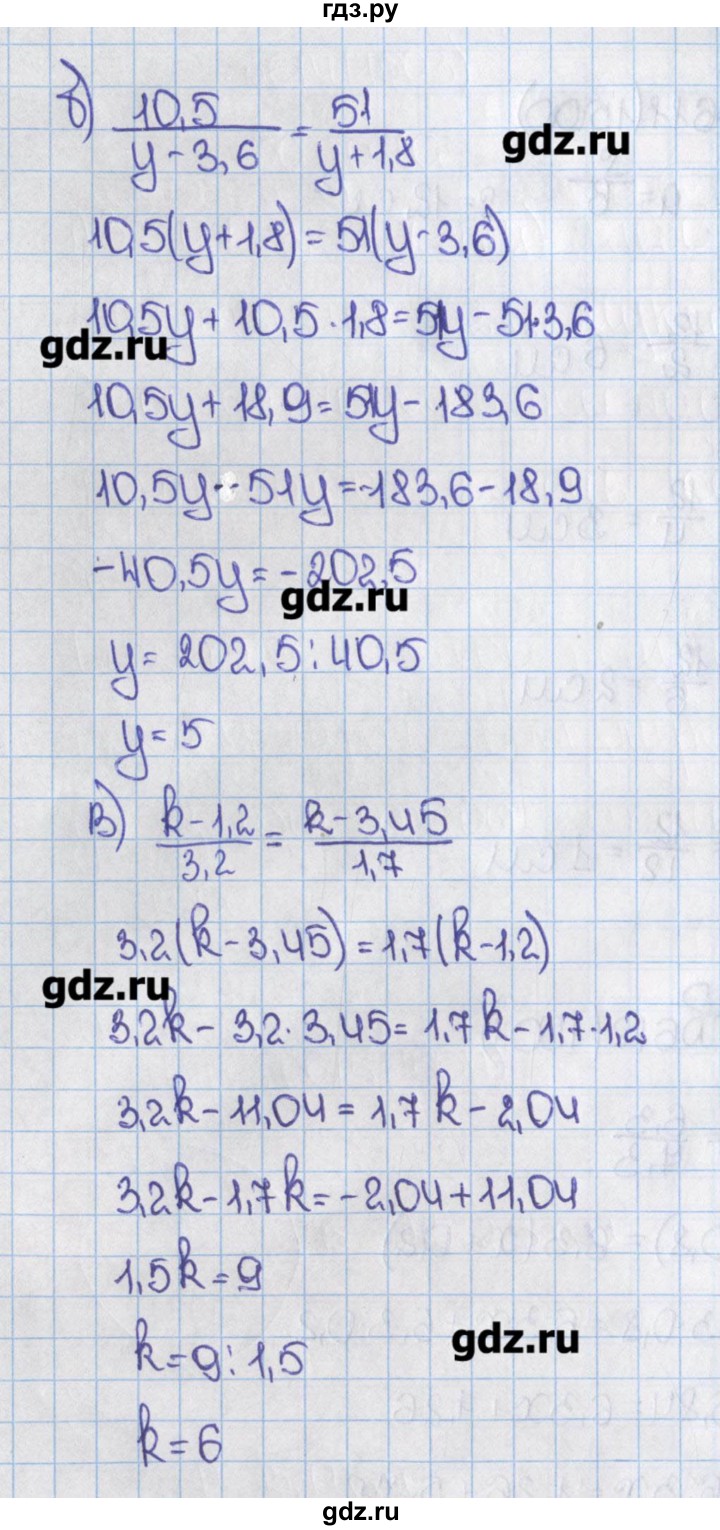 гдз.ру
б) 10,5 / (y - 3,6) = 51 / (y + 1,8)
gdz.ru
10,5(y+1,8) = 51(y-3,6)
10,5y + 10,5 · 1,8 = 51y - 51·3,6
gdz.ru
10,5y + 18,9 = 51y - 183,6
10,5y - 51y = -183,6 - 18,9
-40,5y = -202,5
gdz.ru
y = 202,5 : 40,5
y = 5
в) (k - 1,2) / 3,2 = (k - 3,45) / 1,7
3,2(k - 3,45) = 1,7(k - 1,2)
gdz.ru
3,2k - 3,2 · 3,45 = 1,7k - 1,7 · 1,2
3,2k - 11,04 = 1,7k - 2,04
3,2k - 1,7k = -2,04 + 11,04
1,5k = 9
gdz.ru
k = 9 : 1,5
k = 6
gdz.ru